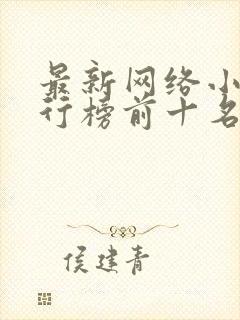 最新网络小
行榜前十名
侯建青